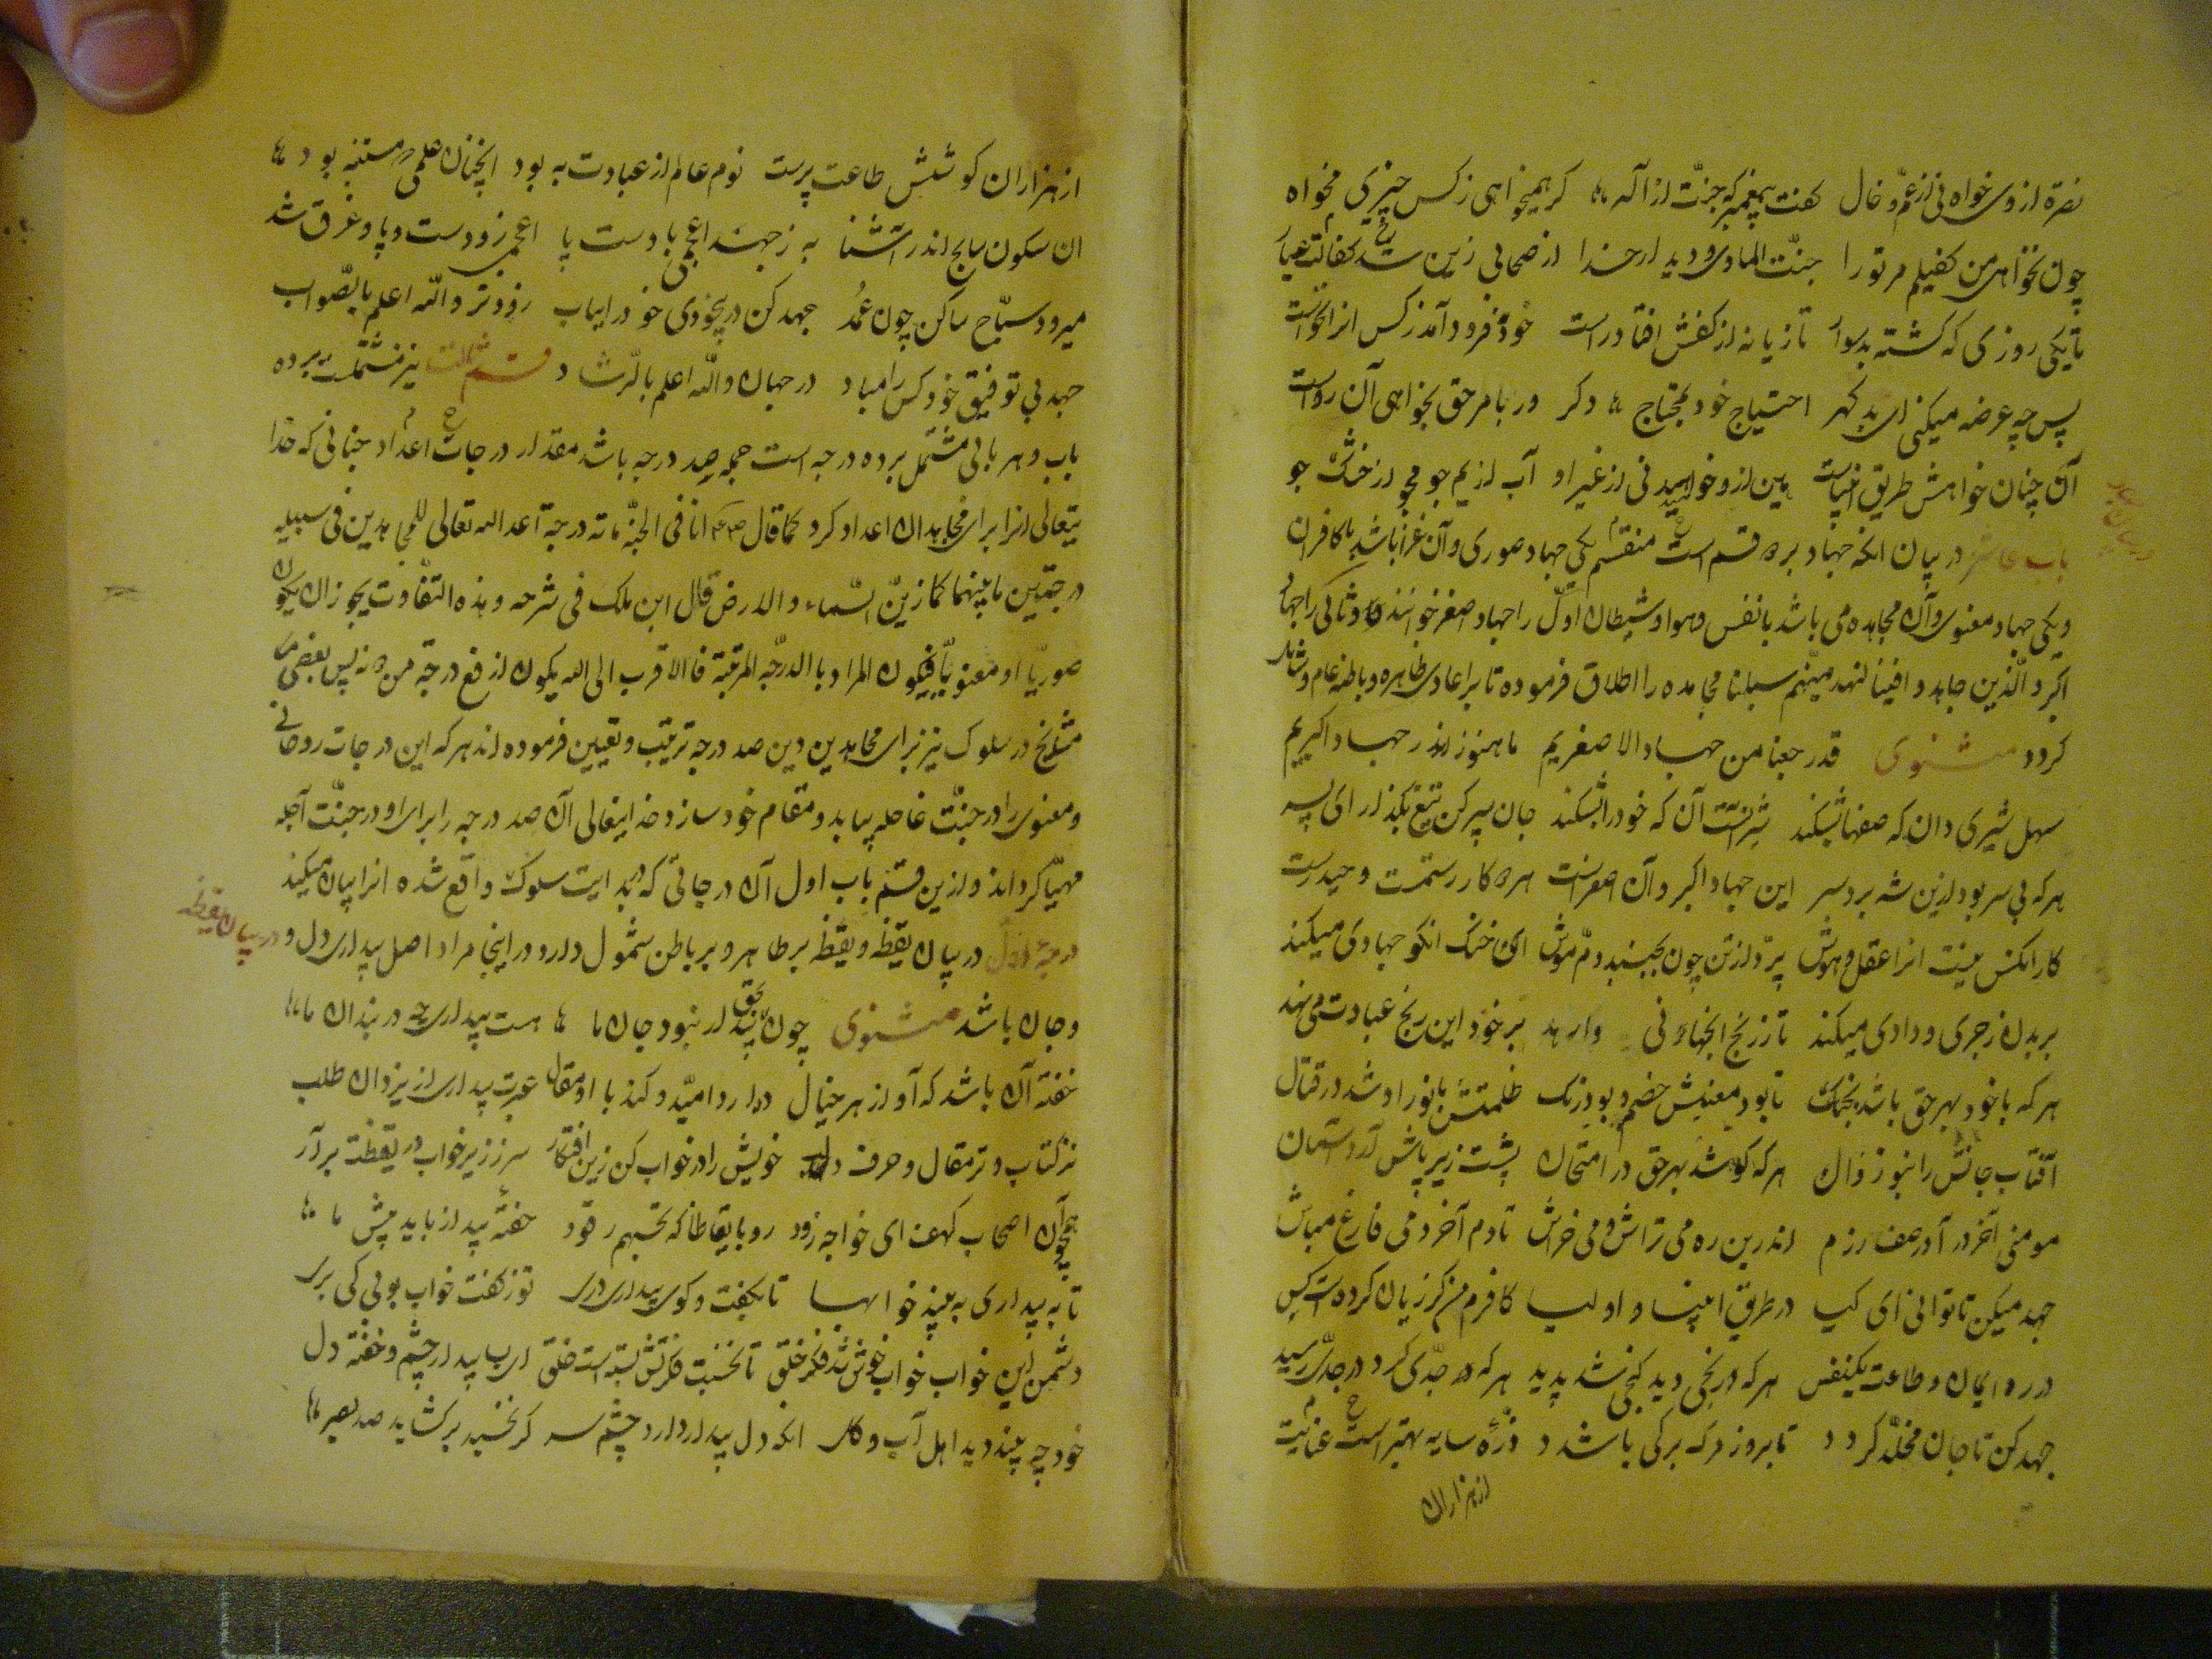 نصرة از وی خواه نی از عم و خال گفت پیغمبر که جنت از اله گر همیخواهی ز کس چیزی مخواه
چون نخواهی من کفیلم مر تو را جنت الماوی و دیدار خدا از صحابی زین شد کفالت عیار
تا یکی روزی که گشته بد سوار تازیانه از کفش افتاد راست خود فرود آمد ز کس انرا نخواست
پس چه عرضه میکنی ای بد گهر احتیاج خود بمحتاج دگر ور بامر حق بخواهی آن رواست
آن چنان خواهش طریق انبیاست هین ازو خواهید نی از غیر او آب از یم جو مجو از خشک جو
باب عاشر در بیان انکه جهاد بر دو قسم است منقسم یکی جهاد صوری و آن غزا باشد با کافران
و یکی جهاد معنوی و آن مجاهده می باشد با نفس و هوا و شیطان اول را جهاد اصغر خوانند و ثانی را جهاد
اکبر و الذین جاهدوا فینا لنهدینهم سبلنا مجاهده را اطلاق فرموده تا بر اعادی ظاهره و باطنه عام و شامل
گردد مثنوی قد رجعنا من جهاد الاصغریم ما هنوز اندر جهاد اکبریم
سهل شیری دان که صفها بشکند شیر آنست آن که خود را بشکند جان سپر کن تیغ بگذار ای پسر
هر که بی سر بود ازین شه برد سر این جهاد اکبر و آن اصغر است هر دو کار رستمست و حیدرست
کار انکس نیست انرا عقل و هوش پرد از تن چون بجنبد دم موش ای خنک انکو جهادی میکند
بر بدن زجری و دادی میکند تا ز رنج آنجهانی وارهد بر خود این رنج عبادت می نهد
هر که با خود بهر حق باشد بجنگ تا بود معنیش خصم و بو و رنگ ظلمتش با نور او شد در قتال
آفتاب جانش را نبود زوال هر که کوشد بهر حق در امتحان پشت زیر پاش آرد آسمان
مومنی آخر درآ در صف رزم اندرین ره می تراش و می خراش تا دم آخر دمی فارغ مباش
جهد میکن تا توانی ای کیا در طریق انبیا و اولیا کافرم من گر زیان کرده است کس
در ره ایمان و طاعت یکنفس هر که رنجی دید گنجی شد پدید هر که جدی کرد در جدی رسید
جهد کن تا جان مخلد گردد تا بروز مرگ برگی باشدد ذره سایه بهتر است عنایت
از هزاران
در بیان جهاد
از هزاران کوشش طاعت پرست نوم عالم از عبادت به بود انچنان علمی مستنبه بود
ان سکون سابح اندر آشنا به ز جهد اعجمی با دست پا اعجمی زد دست و پا و غرق شد
میرود سباح ساکن چون عمد جهد کن در بیخودی خود را بیاب زودتر والله اعلم بالصواب
جهد بی توفیق خود کس را مباد در جهان والله اعلم بالرشاد قسم ثالث نیز مشتملست بر ده
باب و هر بابی مشتمل بر ده درجه است جمله صد درجه باشد مقدار درجات اعداد جنانی که خدا
یتعالی انرا برای مجاهدان اعداد کرد کما قال ان فی الجنة مائة درجة اعد الله تعالی للمجاهدین فی سبیله
درجتین ما بینهما کما بین السماء و الارض قال ابن ملک فی شرحه و هذه التفاوت یجوز ان یکون
صوریا او معنویا فیکون المراد با الدرجه المرتبة فالاقرب الی الله یکون ارفع درجة من دونه پس بعضی
مشایخ در سلوک نیز برای مجاهدین دین صد درجه ترتیب و تعیین فرموده اند هر که این درجات روحانی
و معنوی را در جنت عاجله بیابد و مقام خود سازد خدایتعالی آن صد درجه را برای او در جنت آجله
مهیا گرداند و ازین قسم باب اول آن درجاتی که در بدایت سلوک واقع شده انرا بیان میکند
درجه اول در بیان یقظه و یقظه بر ظاهر و بر باطن شمول دارد و در اینجا مراد اصل بیداری دل و
و جان باشد مثنوی چون بحق بیدار نبود جان ما هست بیداری چو در بندان ما
خفته آن باشد که او از هر خیال دارد امید و کند با او مقال عبرت بیداری از یزدان طلب
نز کتاب و نز مقال و حرف و لب خویش را در خواب کن زین افتکار سر ز زیر خواب در یقظت برآر
همچو آن اصحاب کهف ای خواجه زود رو بایقاظا که تحسبهم رقود خفته بیدار باید پیش ما
تا به بیداری به بیند خوابها
دشمن این خواب خوش شد فکر خلق تا نخسبد فکرتش بسته است حلق ای بسا بیدار چشم و خفته دل
خود چه بیند دید اهل آب و گل انکه دل بیدار دارد چشم سر گر نخسبد برگشاید صد بصر
در بیان یقظه